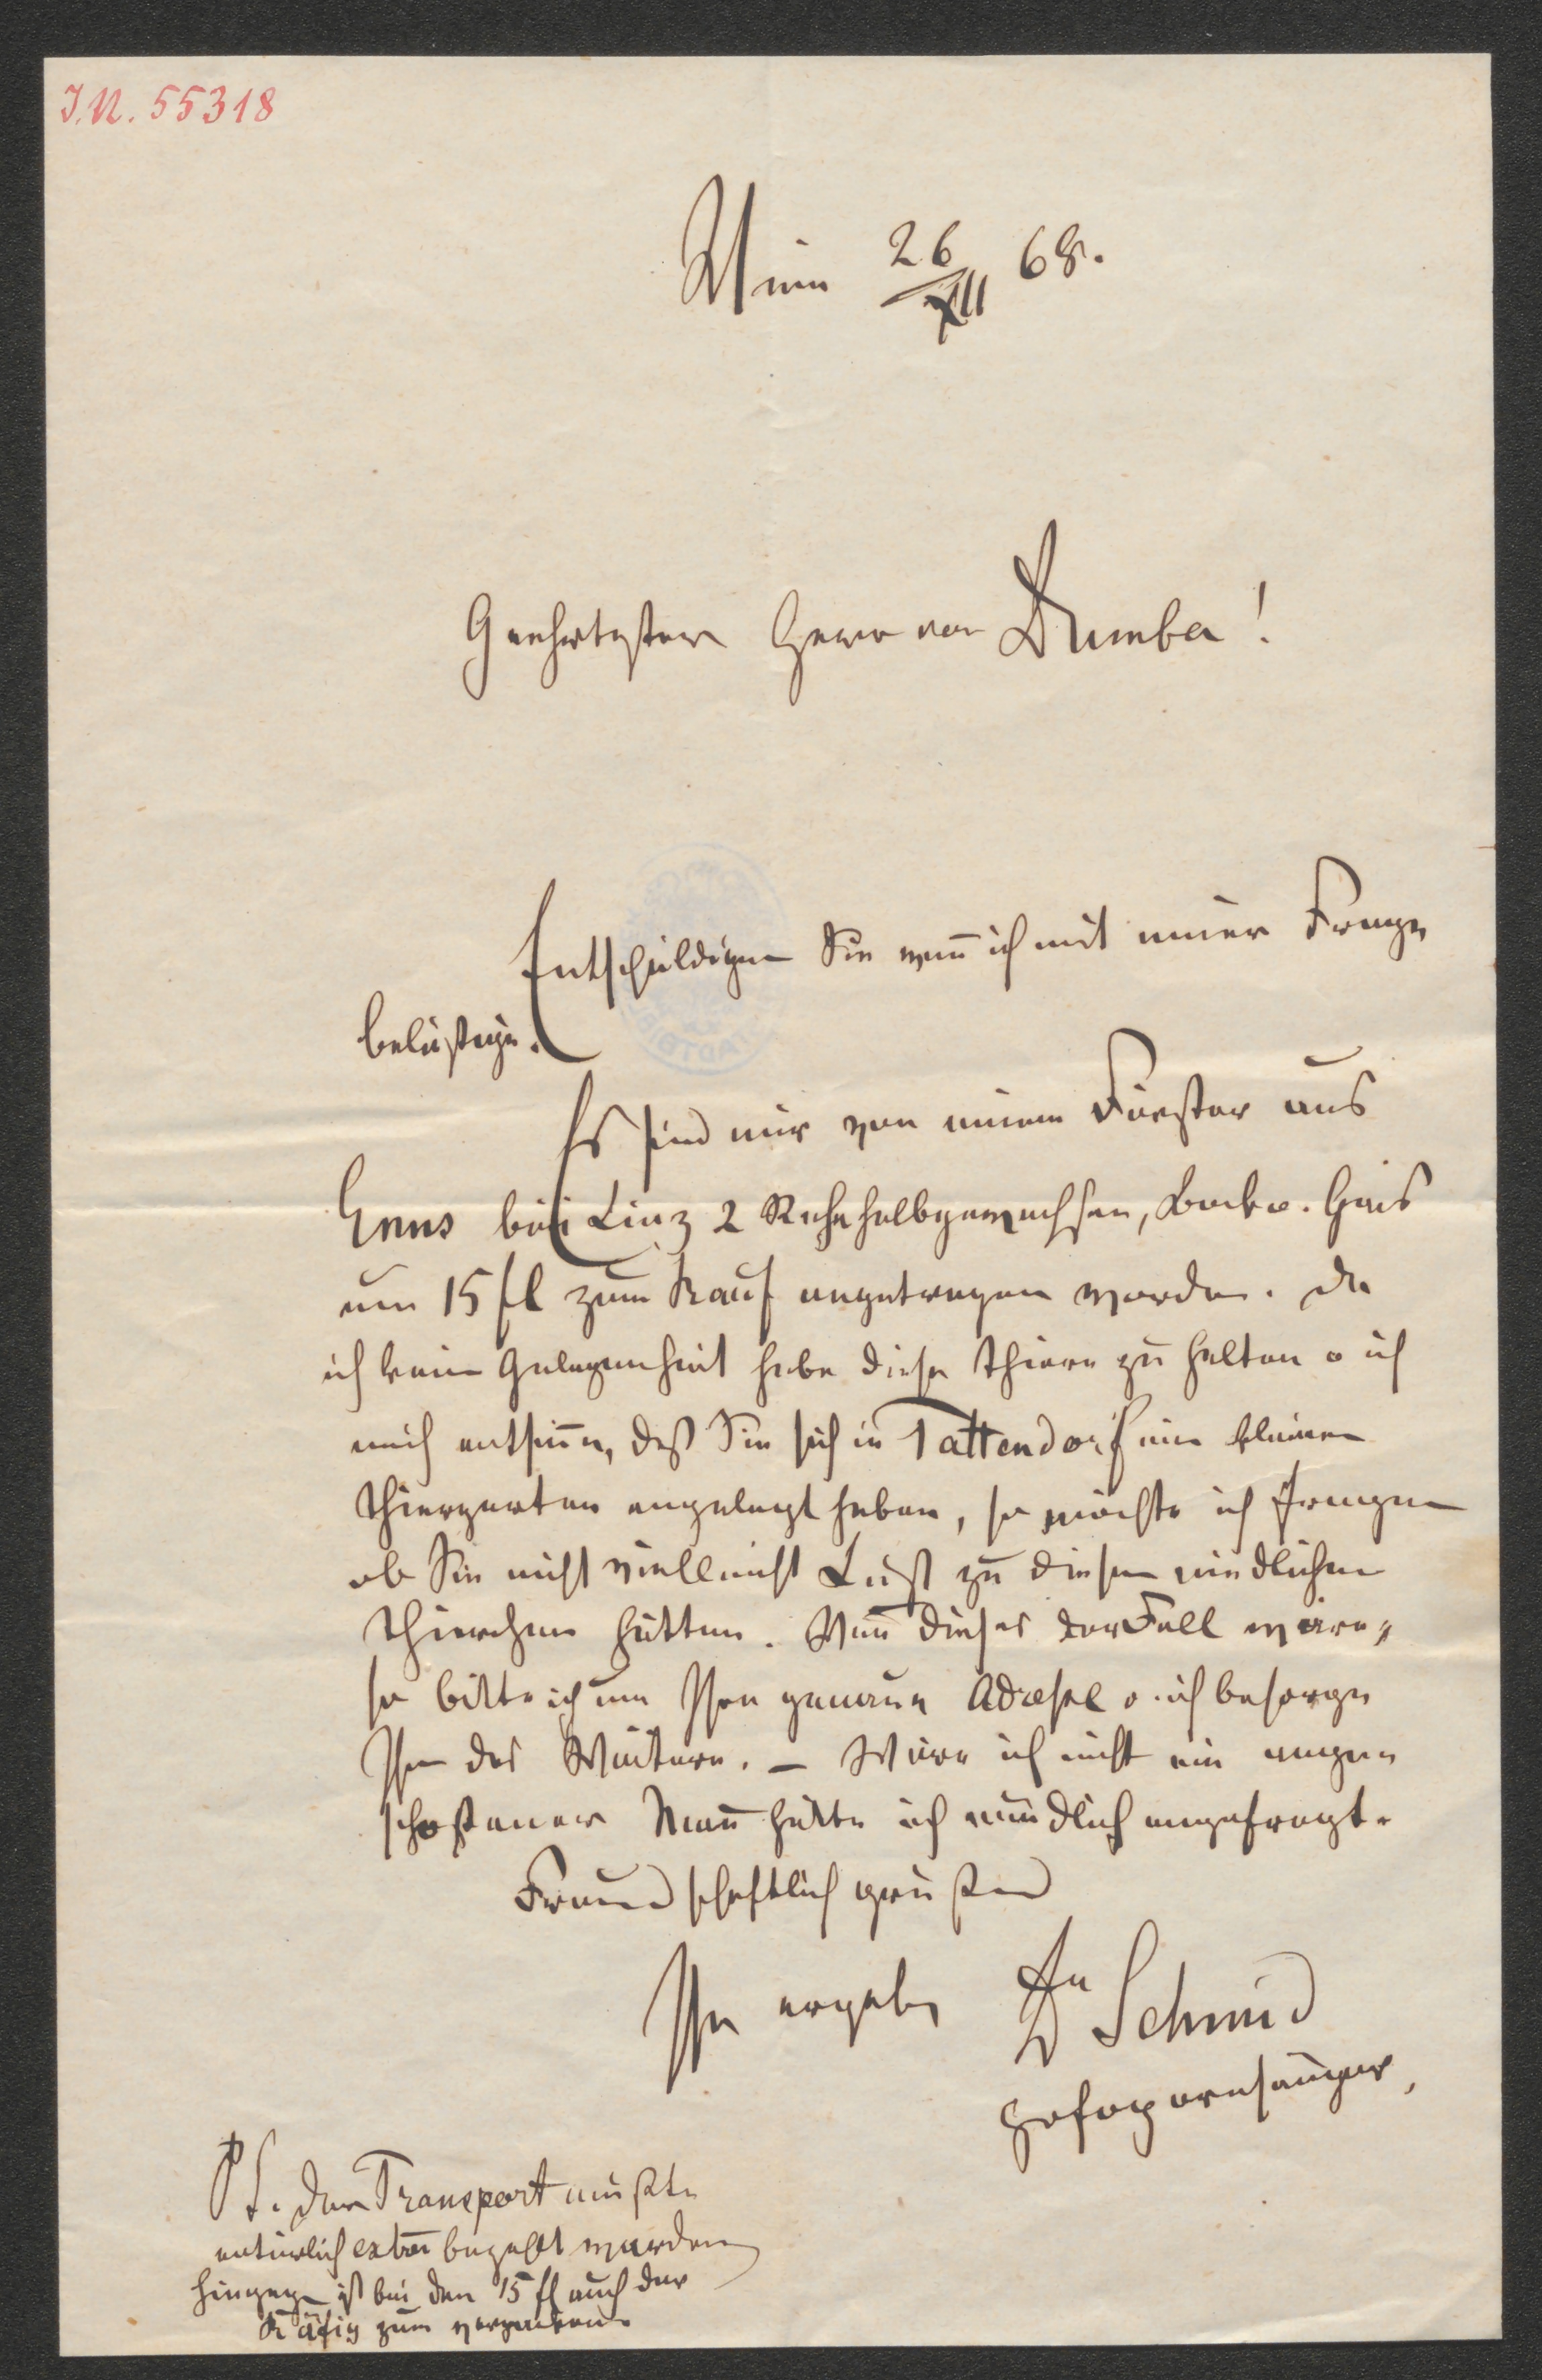 I.N. 55318
Wien 26/XII 68.
Geehrtester Herr von Dumba!
Entschuldigen Sie weñ ich mit einer Frage
belästige.
Es sind mir von einem Förster aus
Enns bei Linz 2 Rehe halbgewachsen, Bock u. Gais
um 15 fl zum Kauf angetragen worden. Da
ich keine Gelegenheit habe diese Thiere zu halten u ich
mich entsiñe, daß Sie sich in Tattendorf einen kleinen
Thiergarten angelegt haben, so möchte ich fragen
ob Sie nicht vielleicht Lust zu diesen niedlichen
Thierchen hätten. Weñ dieses der Fall wäre,
so bitte ich um Ihre genaue Adresse u. ich besorge
Ihnen das Weitere. – Wäre ich nicht ein angeschoßener
Mañ hätte ich mündlich angefragt.
Freundschaftlich grüßend
Ihr ergeb.
Dr Schmid
Hofopernsänger,
PS. Der Transport müßte
natürlich extra bezahlt werden
hingegen ist bei den 15 fl auch der
Käfig zum